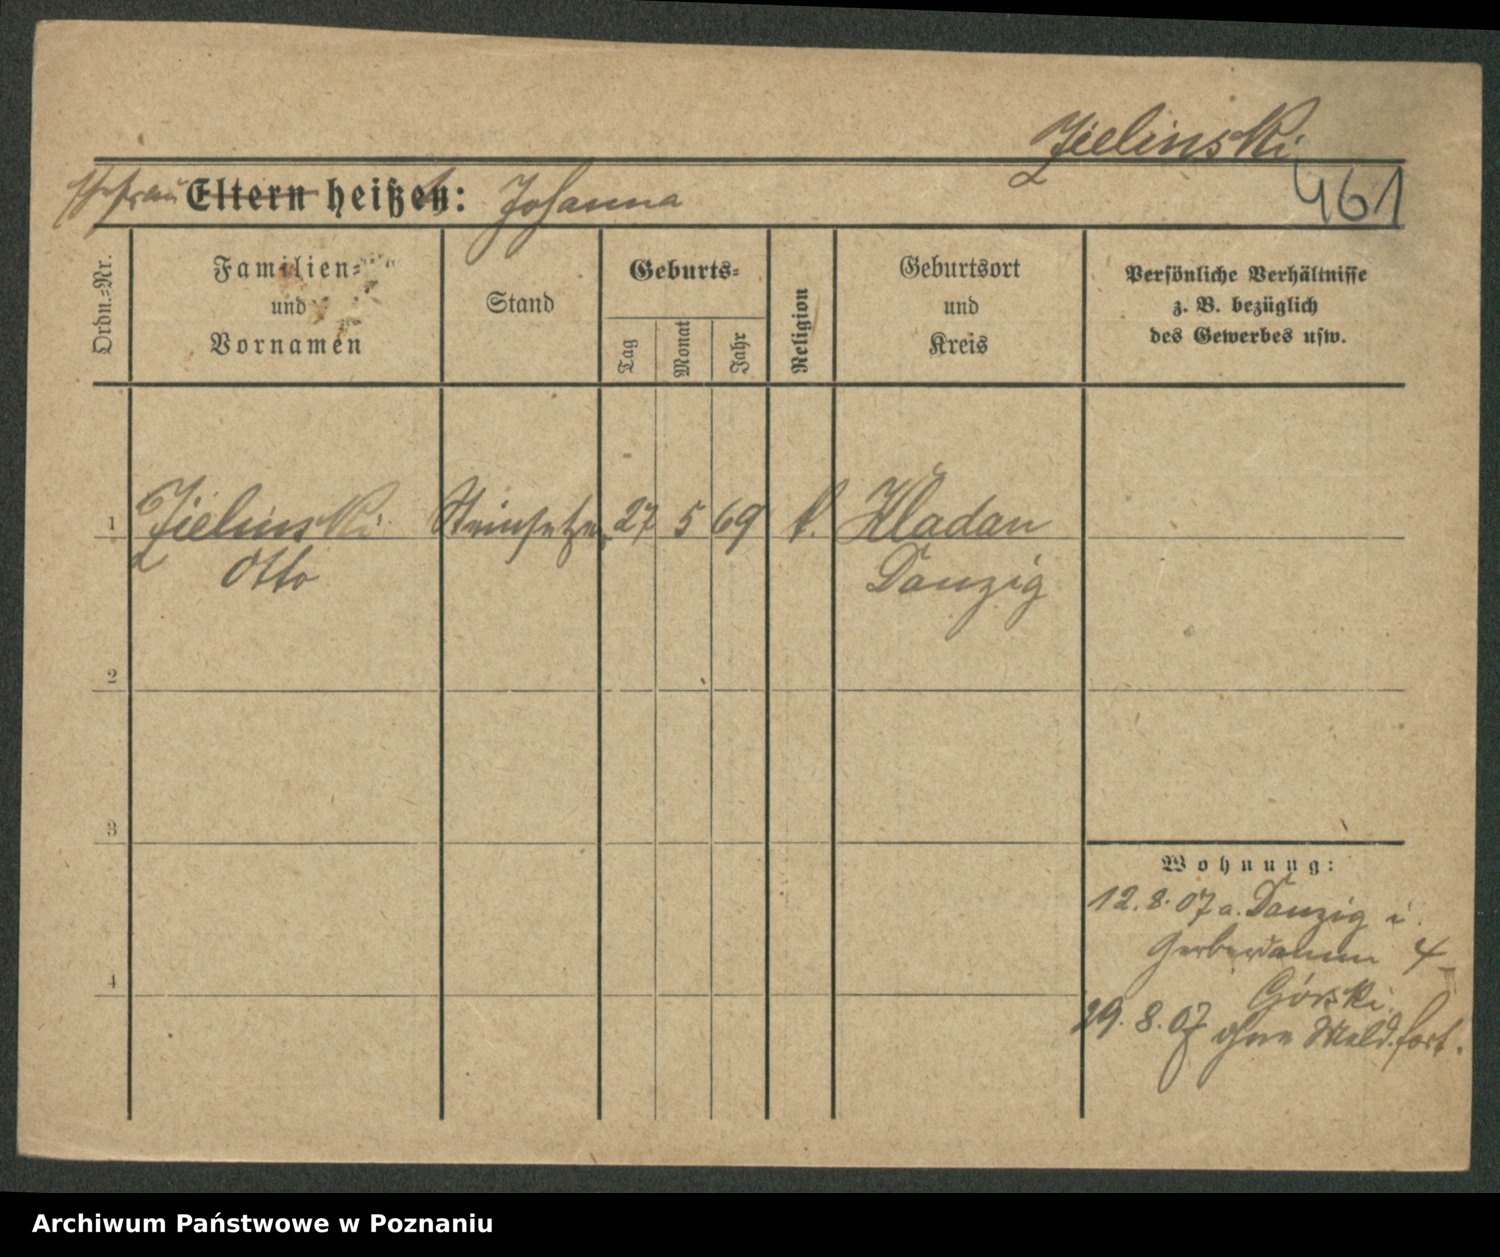 Zielinski
461
Ehefrau Eltern heißen: Johanna
Ordn.-Nr.
Familien-
und
Vornamen
Stand
Geburts-
Tag
Monat
Jahr
Religion
Geburtsort
und
Kreis
Persönliche Verhältnisse
z. B. bezüglich
des Gewerbes usw.
1 Zielinski Steinsetzer 27 5 69 k. Kladau
Otto Danzig
2
3
4
Wohnung:
12.8.07 a. Danzig i.
Gerberdamm 4
Górski.
29.8.07 ohne Meld. fort.
Archiwum Państwowe w Poznaniu